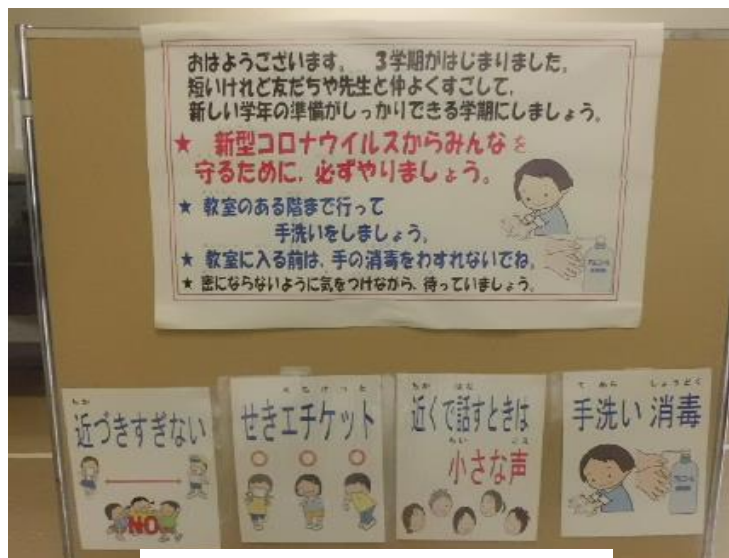 おはようございます。 3学期がはじまりました。
短いけれど友だちや先生と仲よくすごして、
新しい学年の準備がしっかりできる学期にしましょう。
★ 新型コロナウイルスからみんなを
守るために、必ずやりましょう。
★ 教室のある階まで行って
手洗いをしましょう。
★ 教室に入る前は、手の消毒をわすれないでね。
★ 密にならないように気をつけながら、待っていましょう。
アルコール
ちか
近づきすぎない
NO
せきエチケット
ちか はな
近くで話すときは
ちい こえ
小さな声
て あら しょうどく
手洗い 消毒
アルコール